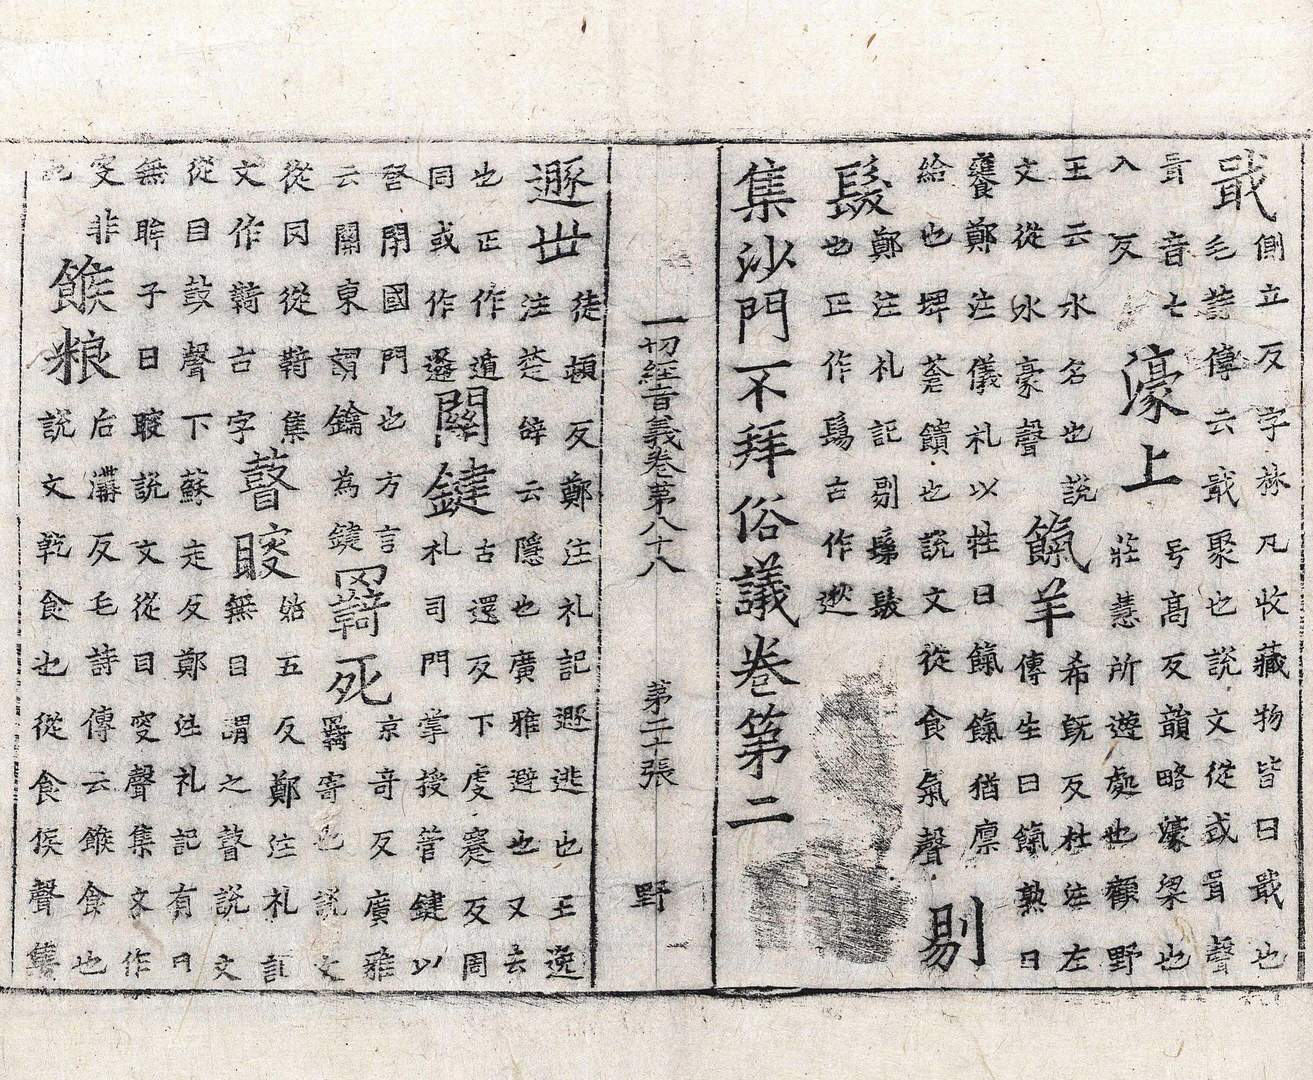 戢側立反字林凡收藏物皆曰戢也
毛詩傳云戢聚也說文從戈咠聲
咠音七入反濠上号髙反韻略濠梁也
莊惠所遊處也顧野
王云水名也說文從水豪聲餼羊希旣反杜注左
傳生曰餼熟曰
饔鄭注儀礼以牲曰餼餼猶禀
給也埤蒼饋也說文從食氣聲剔
髮鄭注礼記剔髮
也正作鬄古作逖
集沙門不拜俗議卷第二
一切經音義卷第八十八 第二十張 野
遯世徒頓反鄭注礼記遯逃也王逸
注楚辝云隱也廣雅避也又去
也正作遁同或作遯關鍵古還反下虔蹇反周
礼司門掌授管鍵以
啓閉國門也方言云關東謂鑰為鍵羇死京奇反廣雅
羇寄也說文
從冈從䩭集文作䩭古字瞽瞍姑五反鄭注礼記
無目謂之瞽說文
從目鼓聲下蘇走反鄭注礼記有目
無眸子曰瞍說文從目叜聲集文作
叜非餱粮后溝反毛詩傳云餱食也
說文乾食也從食侯聲集